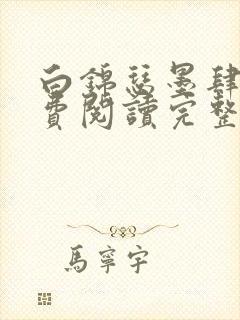 白錦瑟墨肆
費閱讀完整
馬寧宇